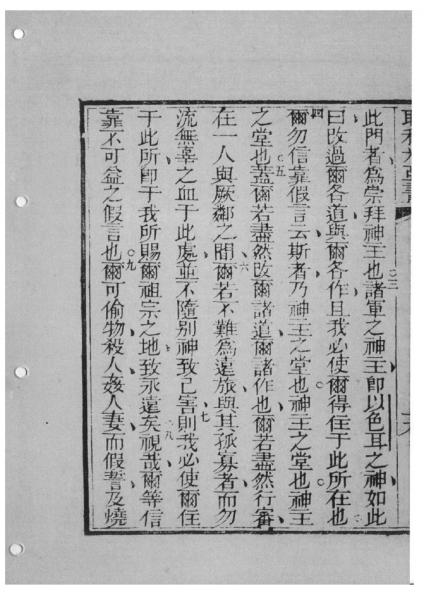 此門者為崇拜神王也○三諸軍之神王即以色耳之神如此
曰改過爾各道與爾各作且我必使爾得住于此所在也
四爾勿信靠假言云斯者乃神王之堂也神王之堂也神王
之堂也○五蓋爾若盡然改爾諸道爾諸作也爾若盡然行審
在一人與厥鄰之間六爾若不難為遠旅與其孤寡者而勿
流無辜之血于此處並不隨別神致己害七則我必使爾住
于此所即于我所賜爾祖宗之地致永遠矣八視哉爾等信
靠不可益之假言也○九爾可偷物殺人姦人妻而假誓及燒